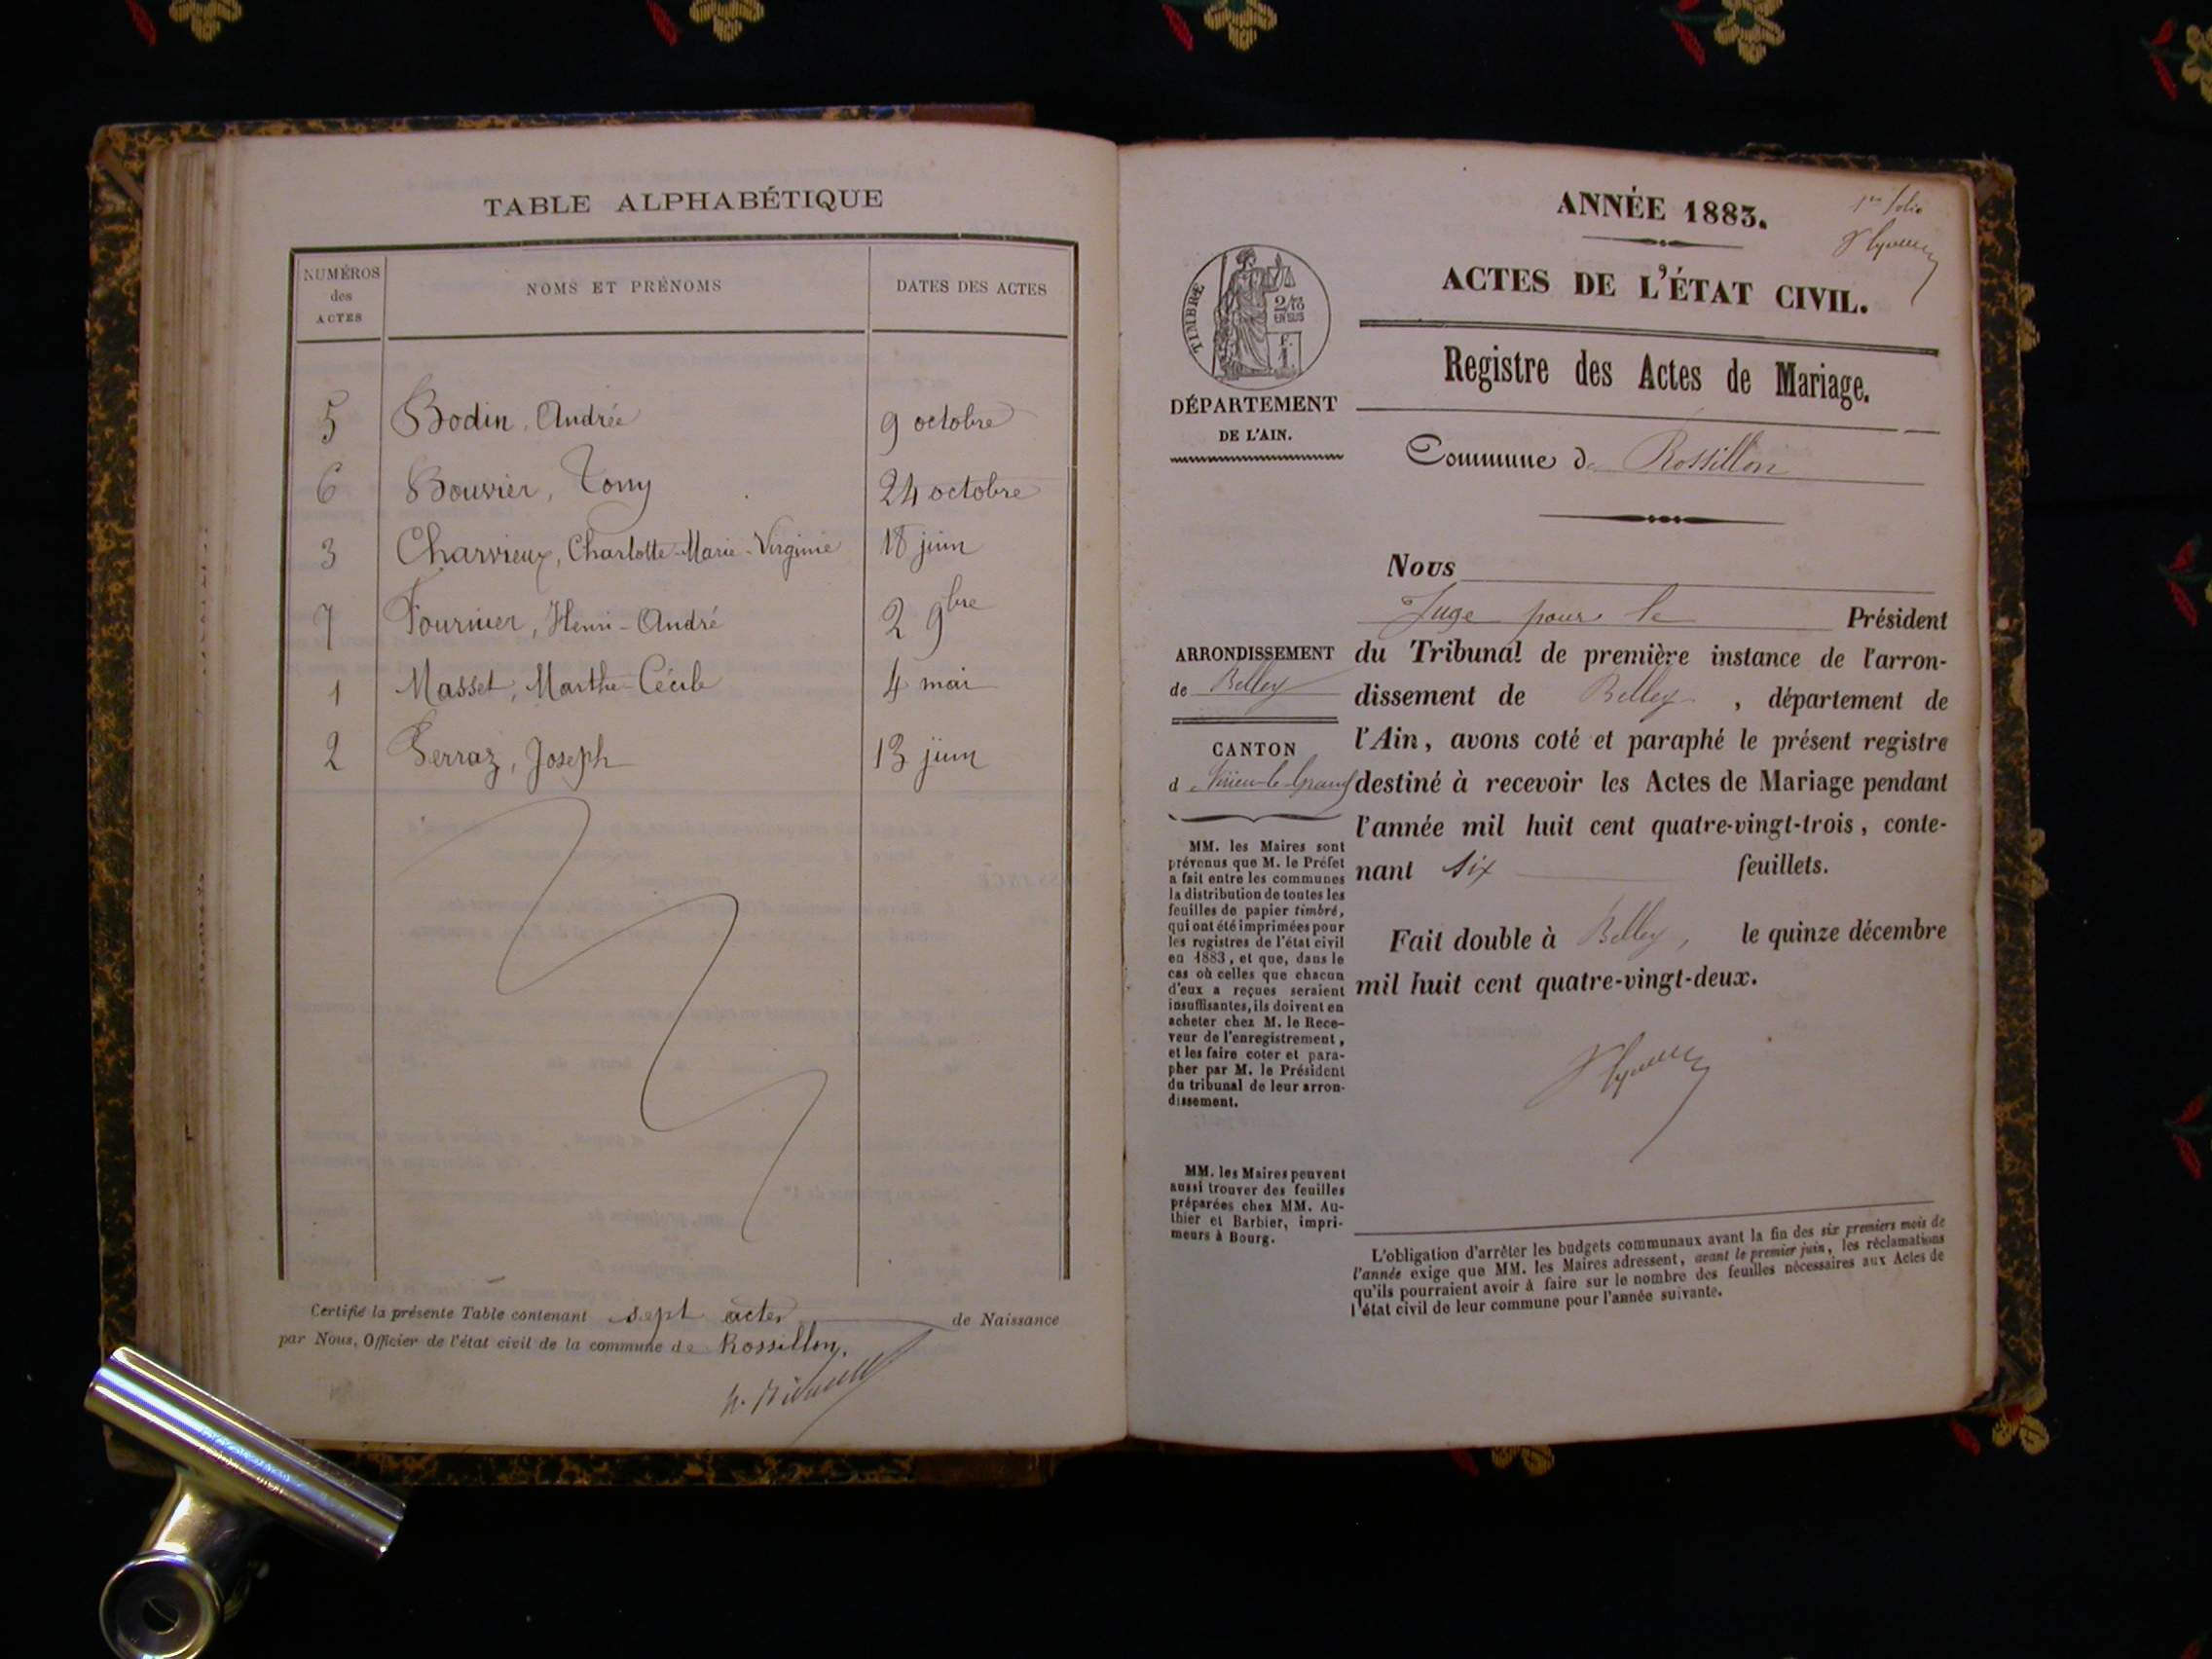 TABLE ALPHABÉTIQUE
NUMÉROS
des
ACTES
NOMS ET PRÉNOMS
DATES DES ACTES
5 Bodin, Andrée 9 octobre
6 Bouvier, Tony 24 octobre
3 Charvieux, Charlotte-Marie-Virginie 18 juin
7 Fournier, Henri-André 2 9bre
1 Masset, Marthe-Cécile 4 mai
2 Serraz, Joseph 13 juin
Certifié la présente Table contenant sept actes de Naissance
par Nous, Officier de l'état civil de la commune de Rossillon.
1er folio
ANNÉE 1883.
ACTES DE L'ÉTAT CIVIL.
Registre des Actes de Mariage.
TIMBRE
2/10
EN SUS
F.
1
DÉPARTEMENT
DE L'AIN.
Commune de Rossillon
Nous
Juge pour le Président
du Tribunal de première instance de l'arron-
dissement de Belley, département de
l'Ain, avons coté et paraphé le présent registre
destiné à recevoir les Actes de Mariage pendant
l'année mil huit cent quatre-vingt-trois, conte-
nant six feuillets.
Fait double à Belley, le quinze décembre
mil huit cent quatre-vingt-deux.
ARRONDISSEMENT
de Belley
CANTON
d Virieu-le-Grand
MM. les Maires sont
prévenus que M. le Préfet
a fait entre les communes
la distribution de toutes les
feuilles de papier timbré,
qui ont été imprimées pour
les registres de l'état civil
en 1883, et que, dans le
cas où celles que chacun
d'eux a reçues seraient
insuffisantes, ils doivent en
acheter chez M. le Rece-
veur de l'enregistrement,
et les faire coter et para-
pher par M. le Président
du tribunal de leur arron-
dissement.
MM. les Maires peuvent
aussi trouver des feuilles
préparées chez MM. Au-
thier et Barbier, impri-
meurs à Bourg.
L'obligation d'arrêter les budgets communaux avant la fin des six premiers mois de
l'année exige que MM. les Maires adressent, avant le premier juin, les réclamations
qu'ils pourraient avoir à faire sur le nombre des feuilles nécessaires aux Actes de
l'état civil de leur commune pour l'année suivante.